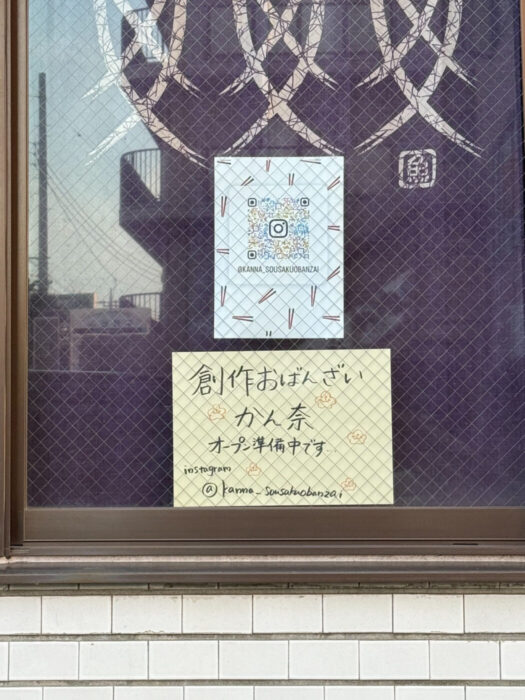 魚
@KANNA_SOUSAKUOBANZAI
創作おばんざい
かん奈
オープン準備中です
instagram
@kanna_sousakuobanzai